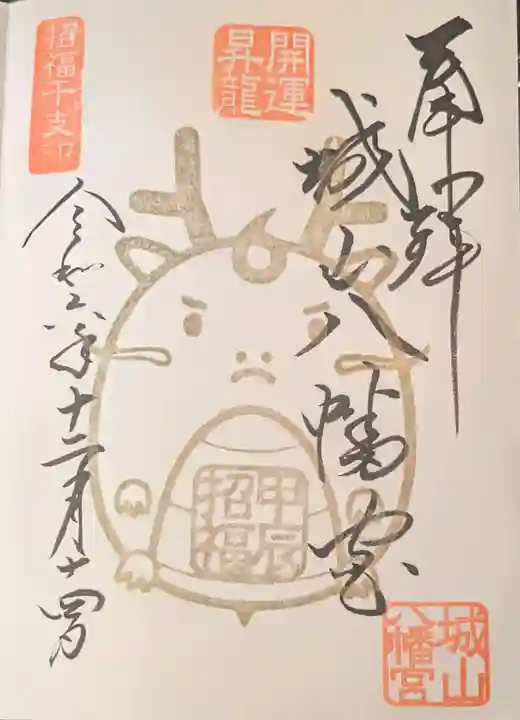 奉拝
城山八幡宮
令和六年十二月十四日
開運
昇龍
招福干支印
甲辰
招福
城山
八幡宮